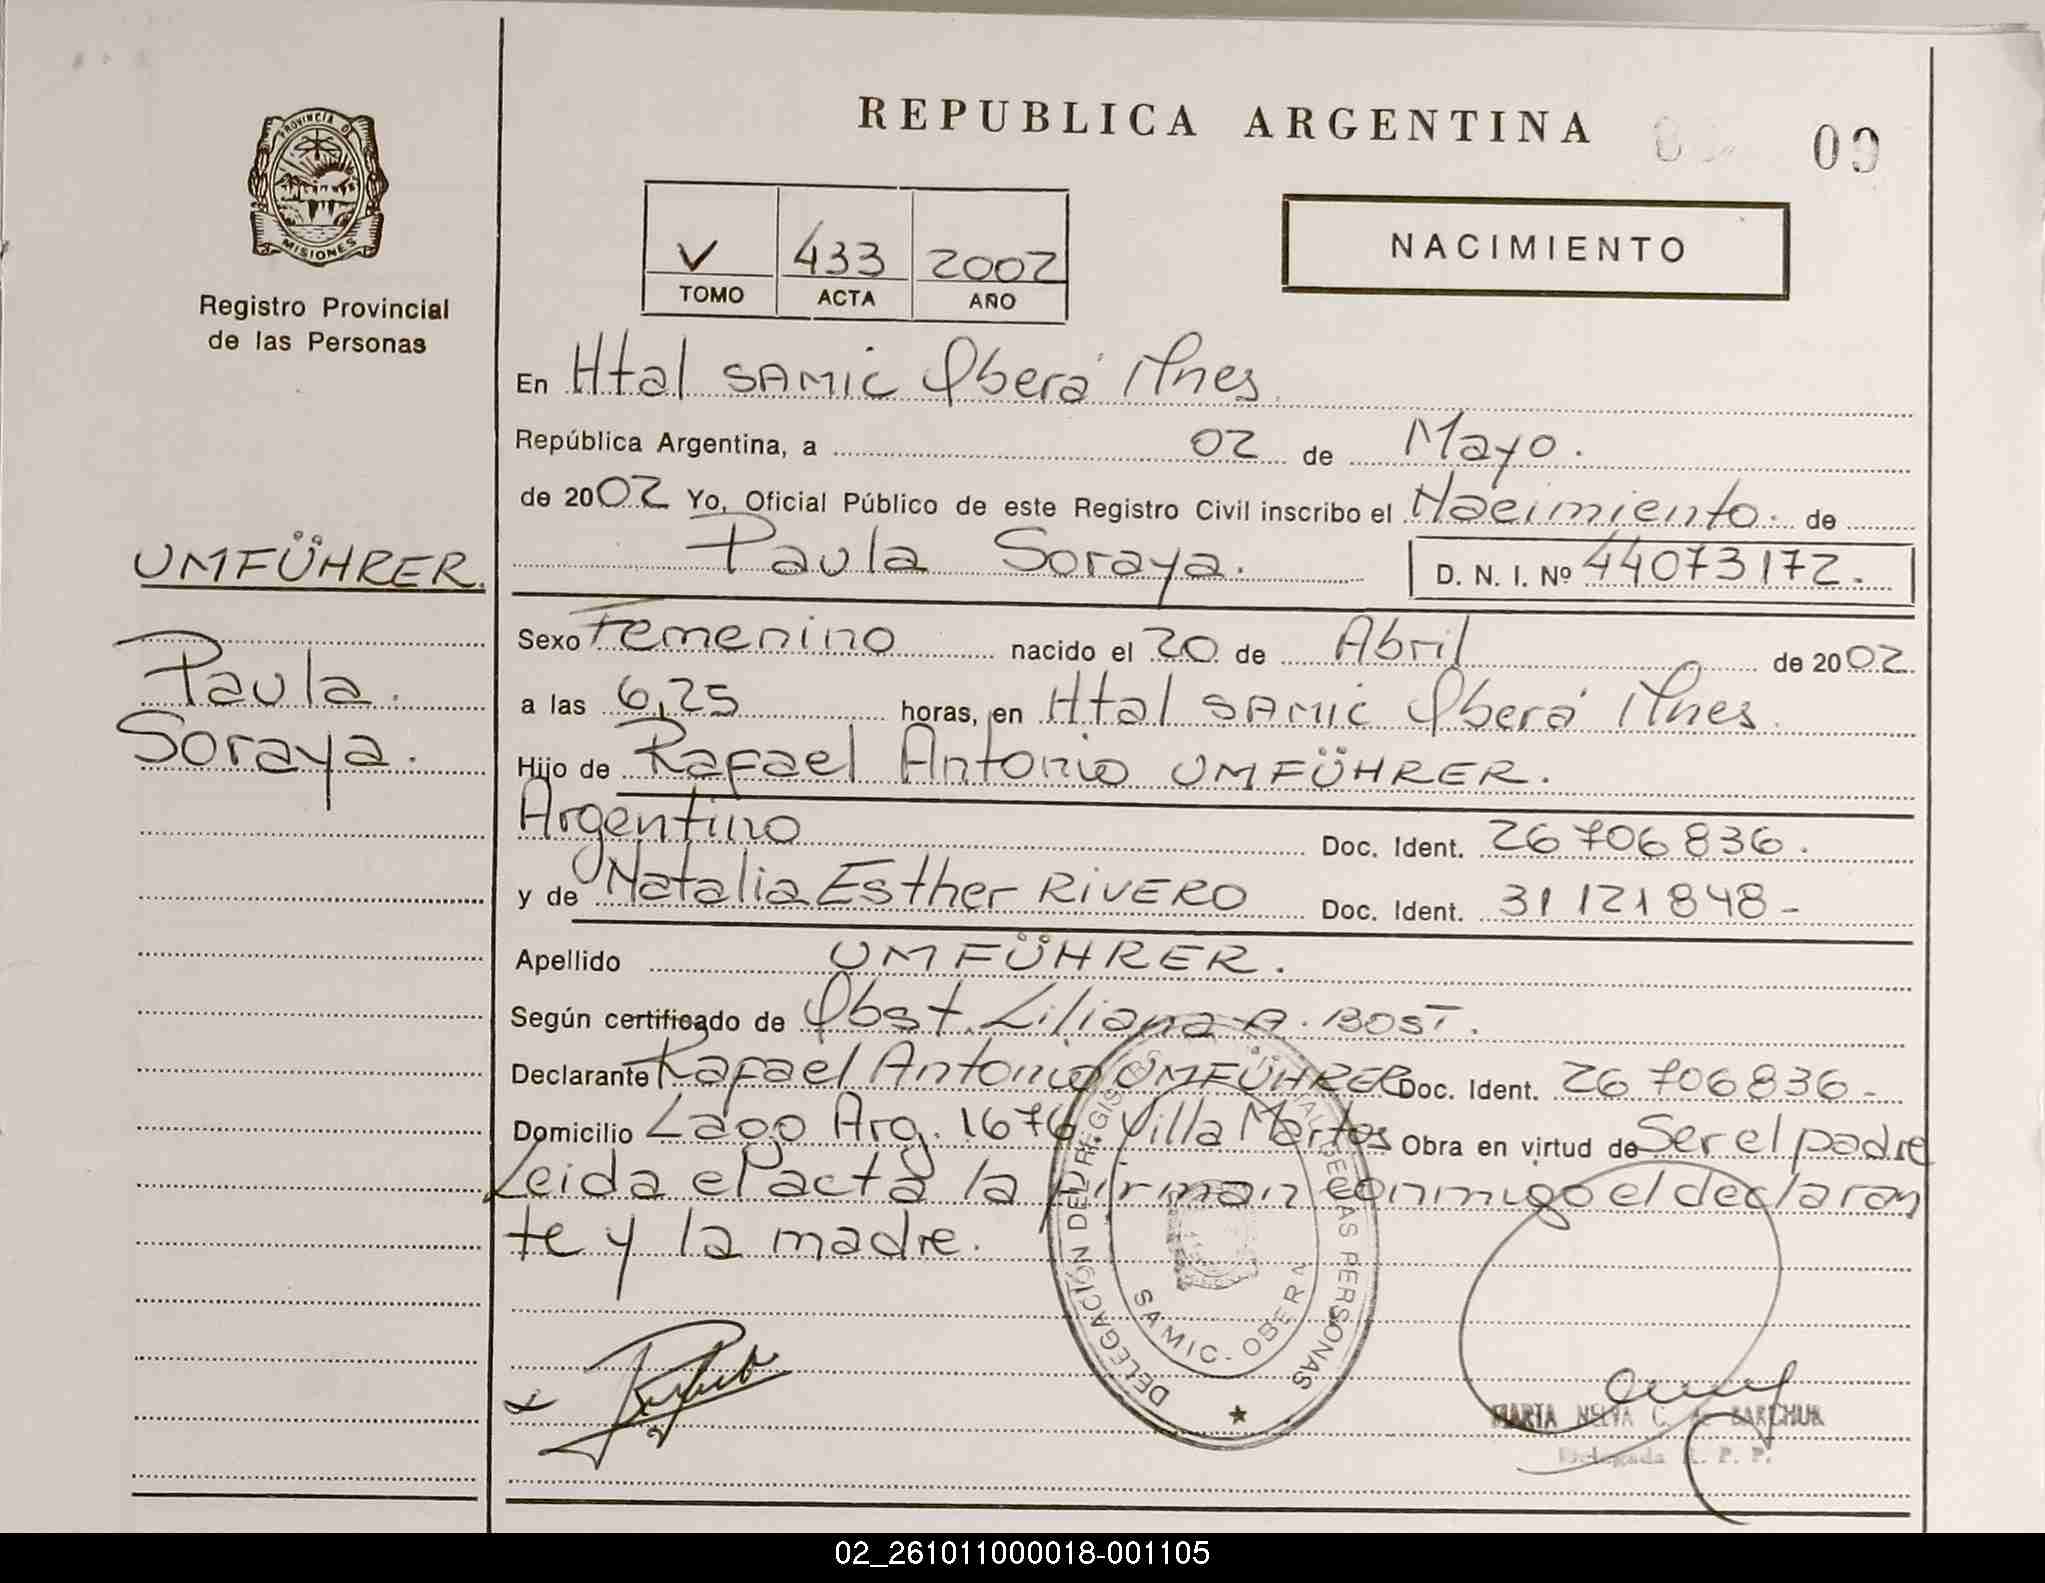 REPUBLICA ARGENTINA
00
PROVINCIA D
MISIONES
Registro Provincial
de las Personas
V 433 2002
TOMO ACTA AÑO
NACIMIENTO
En Htal SAMIC Oberá Mnes.
República Argentina, a 02 de Mayo.
de 2002 Yo, Oficial Público de este Registro Civil inscribo el Nacimiento. de
Paula Soraya. D. N. I. Nº 44073172.
UMFÜHRER.
Paula.
Soraya.
Sexo Femenino nacido el 20 de Abril de 2002.
a las 6,25 horas, en Htal SAMIC Oberá Mnes.
Hijo de Rafael Antonio UMFÜHRER.
Argentino Doc. Ident. 26706836.
y de Natalia Esther RIVERO Doc. Ident. 31121848-
Apellido UMFÜHRER.
Según certificado de Obst. Liliana A. BOST.
Declarante Rafael Antonio UMFÜHRER Doc. Ident. 26706836-
Domicilio Lago Arg. 1676 Villa Martos Obra en virtud de Ser el padre
Leida el acta la firman conmigo el declaran
te y la madre.
DELEGACIÓN DEL REGIST DE LAS PERSONAS
SAMIC - OBERA
MARTA NELVA C. de BARCHUK
Delegada R. P. P.
02_261011000018-001105